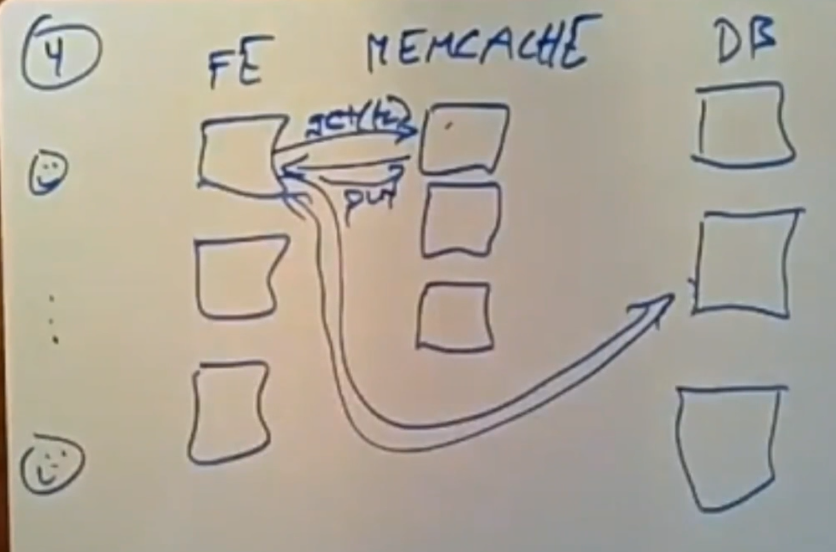 4 FE MEMCACHE DB
get(k)
put